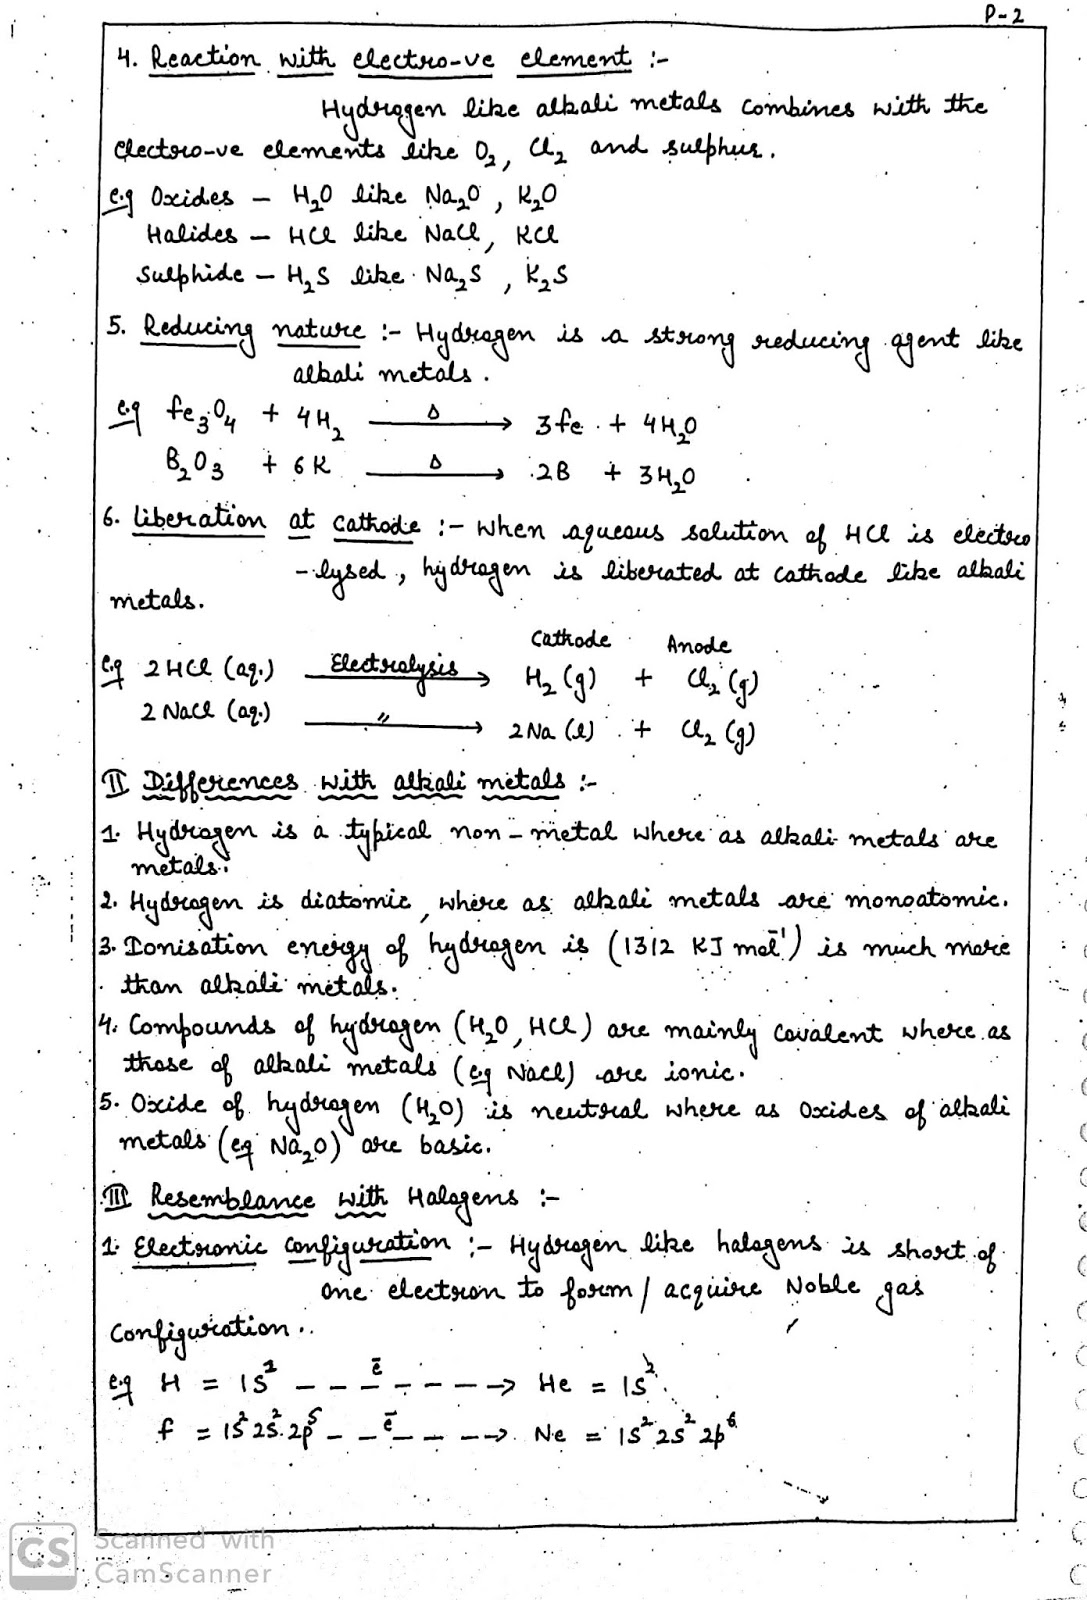 P-2
4. Reaction with electro-ve element :-
Hydrogen like alkali metals combines with the
electro-ve elements like O₂, Cl₂ and sulphur.
e.g Oxides – H₂O like Na₂O, K₂O
Halides – HCl like NaCl, KCl
Sulphide – H₂S like Na₂S, K₂S
5. Reducing nature :- Hydrogen is a strong reducing agent like
alkali metals.
e.g Fe₃O₄ + 4H₂ —Δ→ 3Fe + 4H₂O
B₂O₃ + 6K —Δ→ 2B + 3H₂O
6. Liberation at cathode :- When aqueous solution of HCl is electro
-lysed, hydrogen is liberated at cathode like alkali
metals.
Cathode Anode
e.g 2HCl (aq.) —Electrolysis→ H₂(g) + Cl₂(g)
2NaCl (aq.) —〃→ 2Na(l) + Cl₂(g)
II Differences with alkali metals :-
1. Hydrogen is a typical non-metal where as alkali metals are
metals.
2. Hydrogen is diatomic, where as alkali metals are monoatomic.
3. Ionisation energy of hydrogen is (1312 KJ mol⁻¹) is much more
than alkali metals.
4. Compounds of hydrogen (H₂O, HCl) are mainly covalent where as
those of alkali metals (eg NaCl) are ionic.
5. Oxide of hydrogen (H₂O) is neutral where as oxides of alkali
metals (eg Na₂O) are basic.
III Resemblance with Halogens :-
1. Electronic configuration :- Hydrogen like halogens is short of
one electron to form / acquire Noble gas
configuration..
e.g H = 1S¹ – – ē – – – –> He = 1S²
F = 1S² 2S² 2p⁵ – – ē – – – –> Ne = 1S² 2S² 2p⁶
CS Scanned with
CamScanner